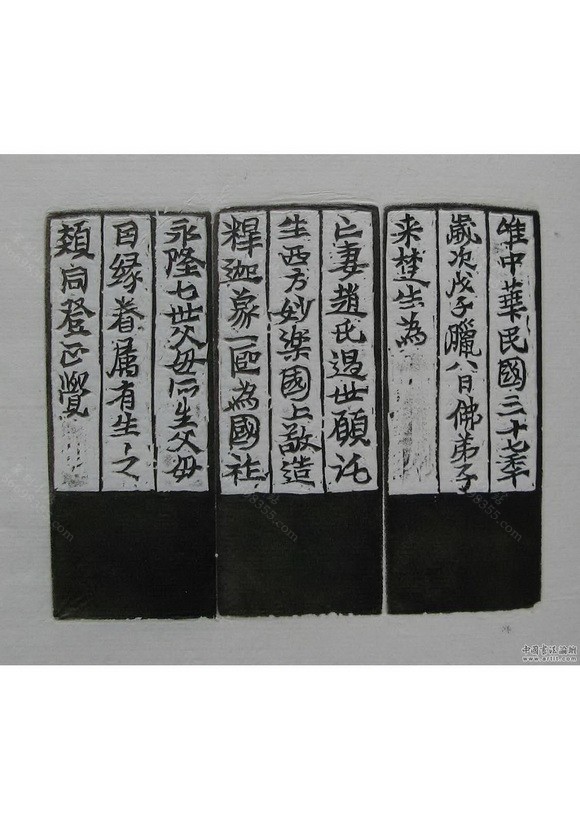 惟中華民國三十七年
歲次戊子臘八日佛弟子
来楚生為
亡妻趙氏過世願託
生西方妙楽國土敬造
釋迦象一區為國祚
永隆七世父母所生父母
因緣眷屬有生〻之
類同登正覺
中國書法論壇
www.artit.com